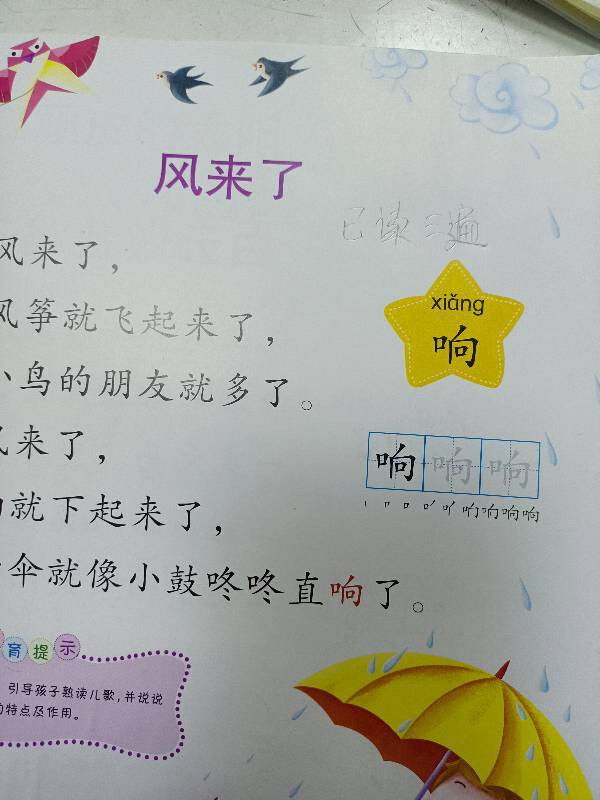 风来了
已读三遍
风来了，
风筝就飞起来了，
小鸟的朋友就多了。
xiǎng
响
来了，
就下起来了，
伞就像小鼓咚咚直响了。
响响响
育提示
引导孩子熟读儿歌，并说说
的特点及作用。